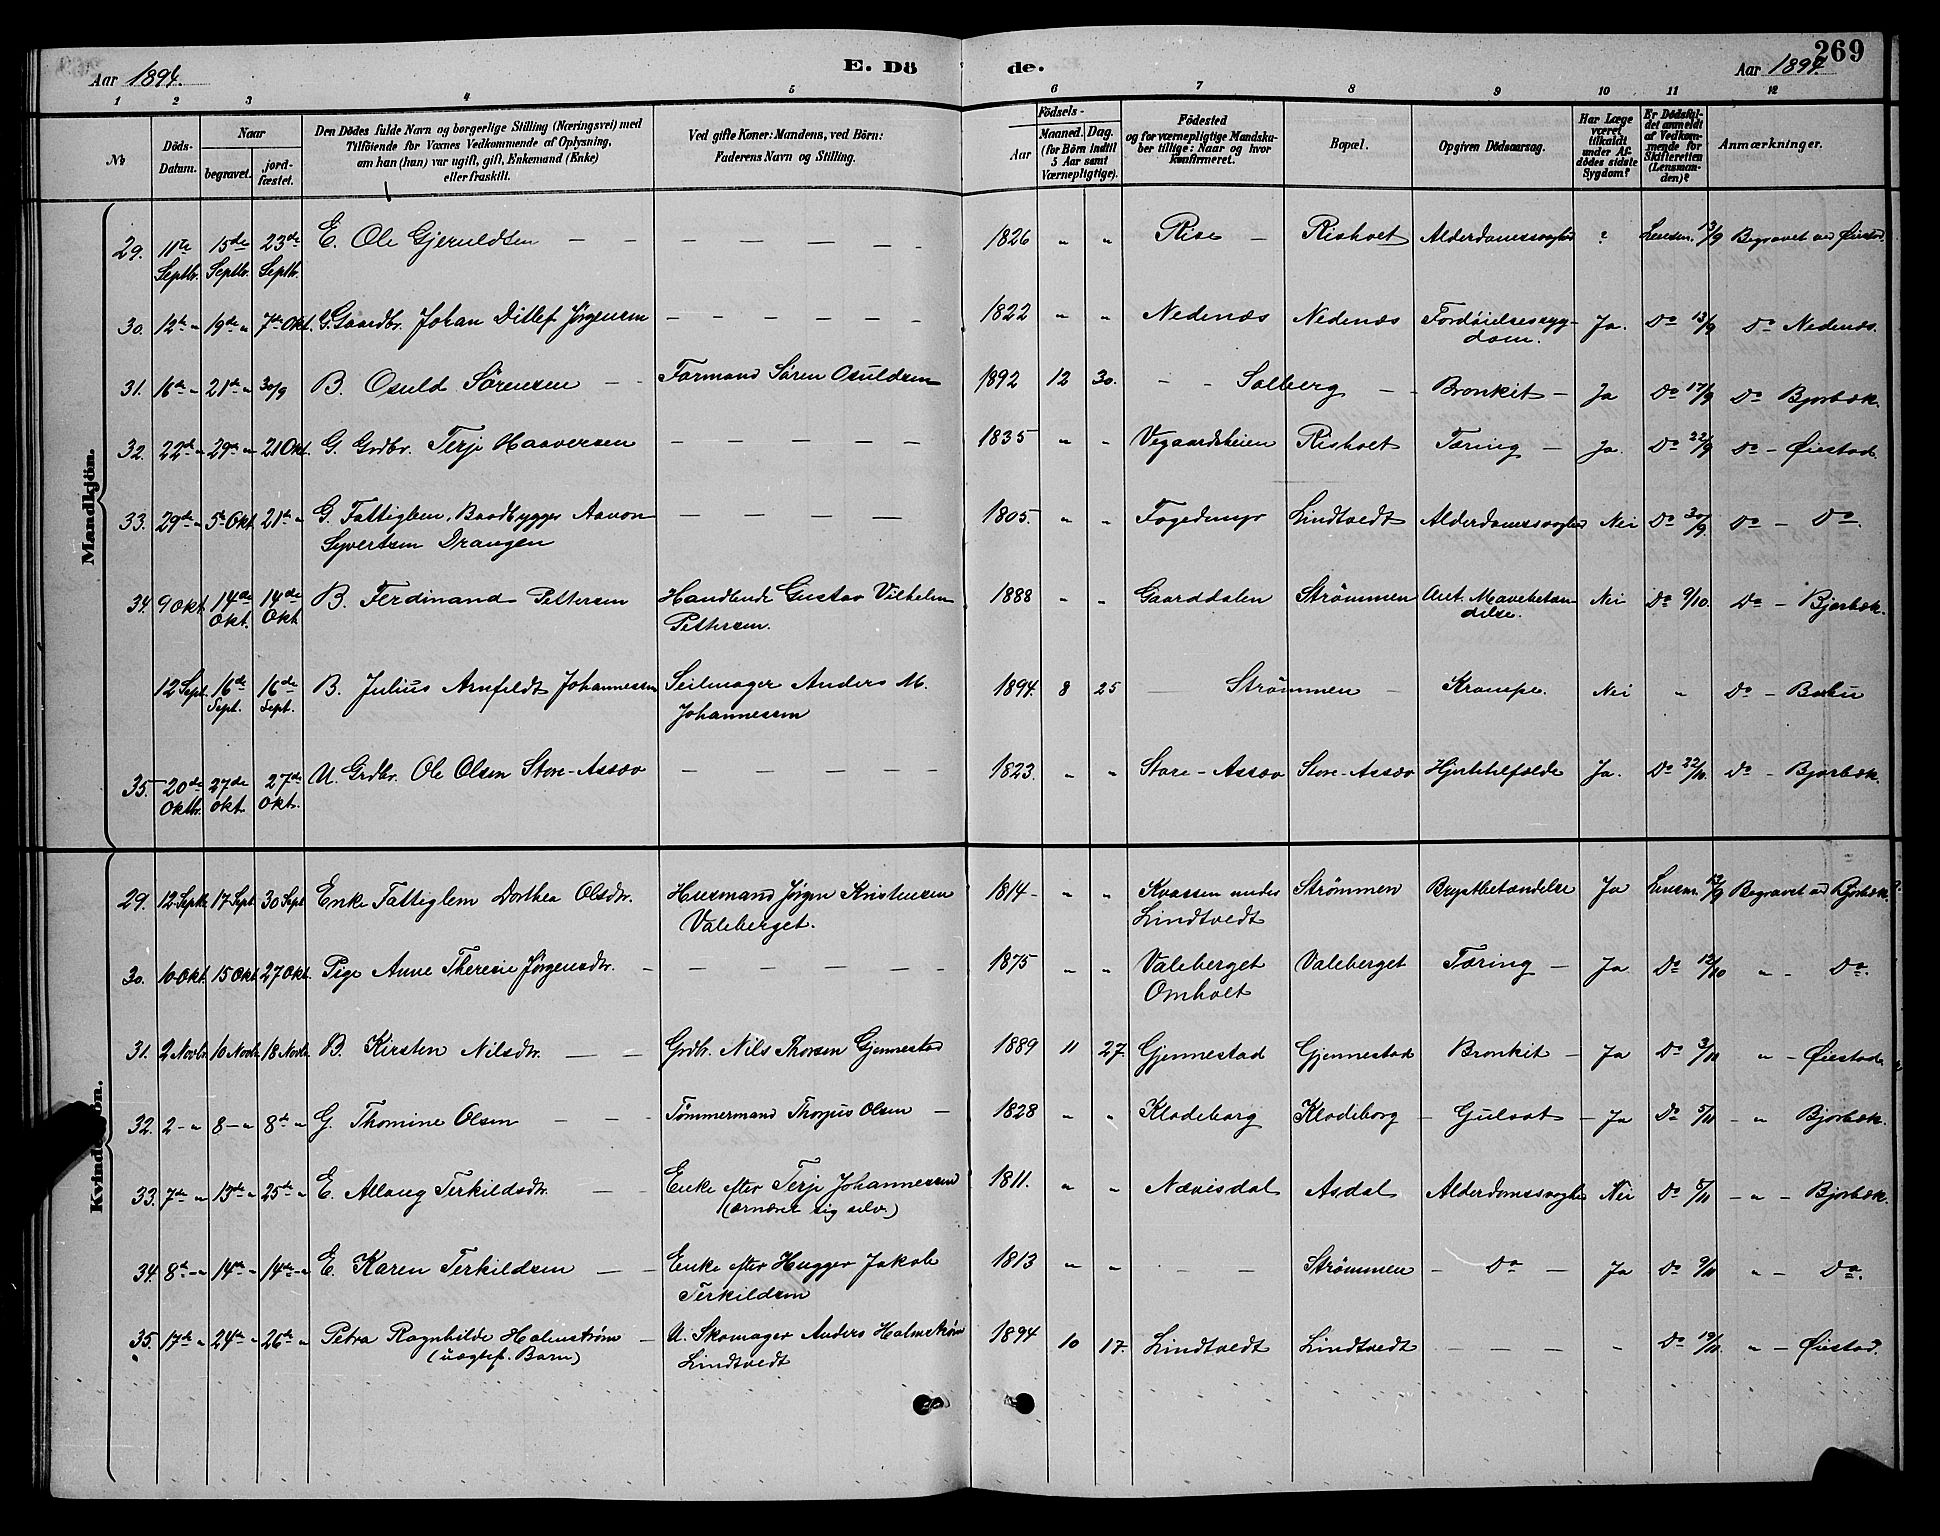 269
Aar 1894.
E. Dö de.
Aar 1894.
1 2 3 4 5 6 7 8 9 10 11 12
No
Döds-Datum.
Naar
begravet.
jordfæstet.
Den Dödes fulde Navn og borgerlige Stilling (Næringsvei) med
Tilföiende for Voxnes Vedkommende af Oplysning,
om han (hun) var ugift, gift, Enkemand (Enke)
eller fraskilt.
Ved gifte Koner: Mandens, ved Börn:
Faderens Navn og Stilling.
Födsels-
Aar
Maaned. Dag.
(for Börn indtil
5 Aar samt
Værnepligtige).
Födested
og for værnepligtige Mandskaber tillige: Naar og hvor
konfirmeret.
Bopæl.
Opgiven Dödsaarsag.
Har Læge
været
tilkaldt
under Afdödes sidste
Sygdom?
Er Dödsfaldet anmeldt
af Vedkommende for
Skifteretten
(Lensmanden)?
Anmærkninger.
Mandkjön.
29. 11te Septb. 15de Septb. 23de Septb. E. Ole Gjeruldsen — 1826 " " Rise — Risholt Alderdomssvaghed ? Lensm. 13/9 Begravet ved Øiestad
30. 12te " 19de " 7de Okt. G. Gaardbr. Johan Ditlef Jørgensen — 1822 " " Nedenæs Nedenæs Fordøielsessygdom. Ja. Do 13/9 Do Nedenæs.
31. 16de " 21de " 30/9 B. Osuld Sørensen — Formand Søren Osuldsen 1892 12 30. — Solberg — Bronkit — Ja Do 17/9 Do Bjorbæk.
32. 22de " 29de " 21 Okt. G. Grdbr. Terje Haaversen — 1835 " " Vegaardsheien Risholt Tæring — Ja. Do 22/9 Do — Øiestad.
33. 29de " 5te Okt. 21de " G. Fattiglem, Baadbygger Aavon
Syvertsen Drangen — 1805. " " Lindtvedt Alderdomssvaghed Nei Do 30/9. Do — Do.
34. 9 Okt. 14de Okt. 14de Okt B. Ferdinand Pettersen Handlende Gustav Vilhelm
Pettersen. 1888 " " Gaarddalen Strømmen Aut. Mavebetændelse. Nei Do 9/10. Do — Bjorbæk.
12 Sept. 16de Sept. 16de Sept. B. Julius Arnfeldt Johannessen Seilmager Anders M.
Johannessen 1894. 8 25 — Strømmen — Krampe. Nei " Do —
35. 20de Oktbr. 27de Okt. 27de Okt. U. Grdbr. Ole Olsen Store-Assæv — 1823. " " Store-Assæv Store-Assæv Hjertetilfælde Ja. Do 22/10. Do — Bjorbæk.
Kvindkjön.
29. 12 Septb. 17 Sept. 30 Sept. Enke Fattiglem Dorthea Olsdtr. Husmand Jørgen Kristensen
Valeberget. 1814 — " " Kvassen under
Lindtvedt Strømmen Brystbetændelse Ja Lensm. 13/9 Begravet ved Bjorbæk.
30. 10 Okt. 15 Okt. 27 Okt. Pige Anne Theresie Jørgensdtr. — 1875 " " Valeberget
Omholt Valeberget Tæring — Ja Do 12/10 " Do.
31. 2 Novbr. 10 Novbr. 18 Novbr. B. Kirsten Nilsdtr. — Grdbr. Nils Thorsen Gjennestad 1889 11 27. Gjennestad Gjennestad Bronkit — Ja Do 3/11 " — Øiestad.
32. 2 — " 8 — " 8de " G. Thomine Olsen — Tømmermand Thorjus Olsen — 1828 " " Klodeborg Klodeborg — Gulsot — Ja Do 5/11 — " Bjorbæk.
33. 7de " 13de " 25de " E. Allaug Terkildsdtr. — Enke efter Terje Johannessen
(ernærer sig selv.) 1811. " " Nævisdal Asdal Alderdomssvaghed Nei Do 5/11 — " — Bjorbæk.
34. 8de " 14de " 14de " E. Karen Terkildsen — Enke efter Hugger Jakob
Terkildsen 1813 " " — Strømmen — Do — Ja Do 9/11 " — Do.
35. 17de " 24de " 26de " Petra Ragnhilde Holmstrøm —
(uægtef. Barn) U. Skomager Anders Holmstrøm
Lindtvedt 1894 10 17. Lindtvedt Lindtvedt — Do 19/11. " — Øiestad.